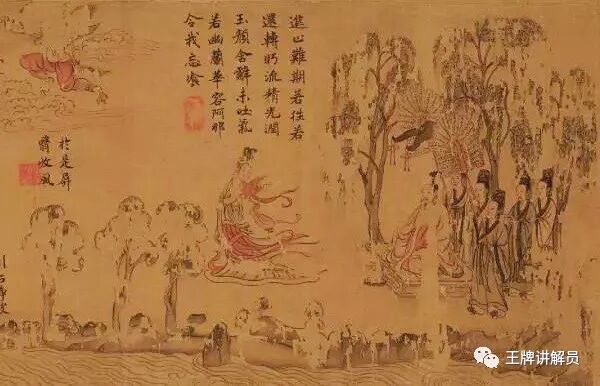 進止難期若往若
還轉眄流精光潤
玉顏含辭未吐氣
若幽蘭華容阿那
令我忘飡
於是屏
翳收風
川后靜波
王牌讲解员